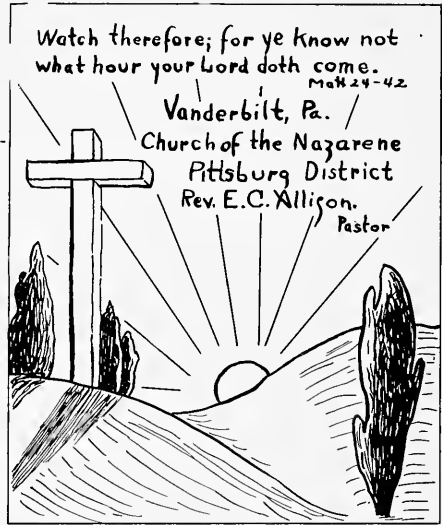 Watch therefore; for ye know not
what hour your Lord doth come.
Matt 24-42
Vanderbilt, Pa.
Church of the Nazarene
Pittsburg District
Rev. E.C. Allison.
Pastor